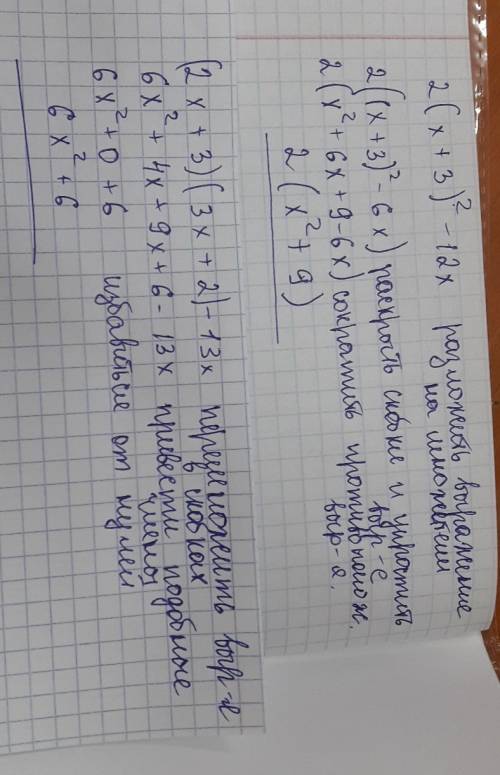 2(x+3)² - 12x разложить выражение
на множители
2((x+3)² - 6x) раскрыть скобки и упростить
выр-е
2(x² + 6x + 9 - 6x) сократить противополож.
выр-е.
2(x² + 9)
(2x + 3)(3x + 2) - 13x перемножить выр-е
в скобках
6x² + 4x + 9x + 6 - 13x привести подобные
члены
6x² + 0 + 6 избавиться от нулей
6x² + 6